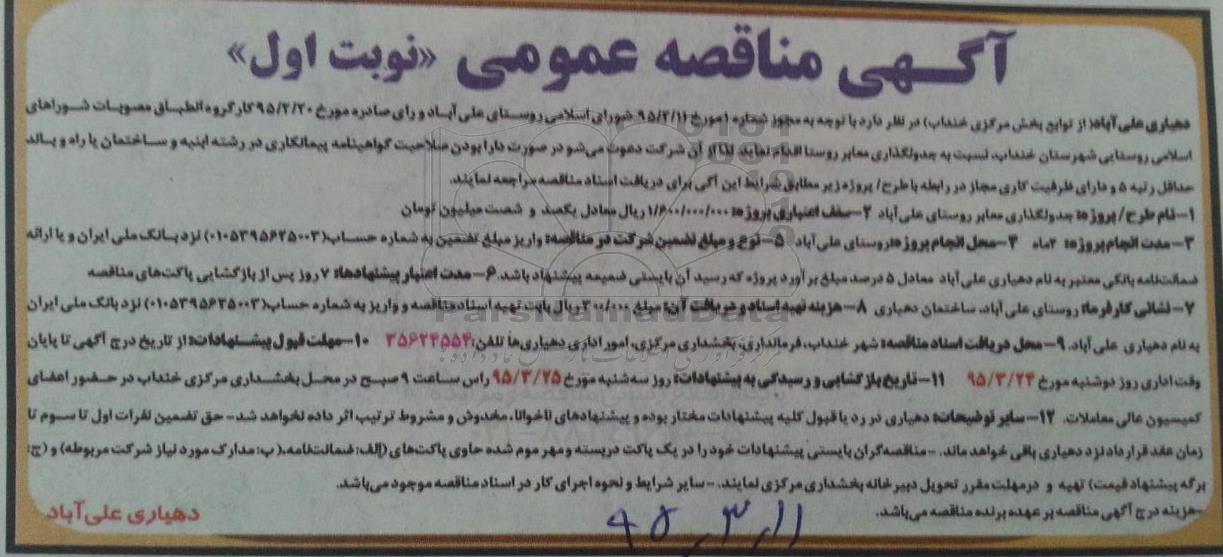 آگهی مناقصه عمومی «نوبت اول»
دهیاری علی آباد( از توابع بخش مرکزی خنداب) در نظر دارد با توجه به مجوز شماره ۱مورخ ۹۵/۲/۱۱ شورای اسلامی روستای علی آباد و رای صادره مورخ ۹۵/۲/۲۰ کارگروه انطباق مصوبات شوراهای
اسلامی روستایی شهرستان خنداب، نسبت به جدولگذاری معابر روستا اقدام نماید. لذا از آن شرکت دعوت می‌شود در صورت دارا بودن صلاحیت گواهینامه پیمانکاری در رشته ابنیه و ساختمان یا راه و باند
حداقل رتبه ۵ و دارای ظرفیت کاری مجاز در رابطه با طرح/ پروژه زیر مطابق شرایط این آگهی برای دریافت اسناد مناقصه مراجعه نمایند.
۱-نام طرح/ پروژه: جدولگذاری معابر روستای علی آباد ۲-سقف اعتباری پروژه: ۱/۶۰۰/۰۰۰/۰۰۰ ریال معادل یکصد و شصت میلیون تومان
۳-مدت انجام پروژه: ۲ماه ۴-محل انجام پروژه: روستای علی آباد ۵-نوع و مبلغ تضمین شرکت در مناقصه: واریز مبلغ تضمین به شماره حساب(۰۱۰۵۳۹۵۶۲۵۰۰۳) نزد بانک ملی ایران و یا ارائه
ضمانتنامه بانکی معتبر به نام دهیاری علی آباد معادل ۵ درصد مبلغ برآورد پروژه که رسید آن بایستی ضمیمه پیشنهاد باشد. ۶-مدت اعتبار پیشنهادها: ۷ روز پس از بازگشایی پاکت‌های مناقصه
۷-نشانی کارفرما: روستای علی آباد، ساختمان دهیاری ۸-هزینه تهیه اسناد و دریافت آن: مبلغ ۳۰۰/۰۰۰ ریال بابت تهیه اسناد مناقصه و واریز به شماره حساب(۰۱۰۵۳۹۵۶۲۵۰۰۳) نزد بانک ملی ایران
به نام دهیاری علی آباد. ۹-محل دریافت اسناد مناقصه: شهر خنداب، فرمانداری، بخشداری مرکزی، امور اداری دهیاری‌ها تلفن: ۳۵۶۲۴۵۵۴ ۱۰-مهلت قبول پیشنهادات: از تاریخ درج آگهی تا پایان
وقت اداری روز دوشنبه مورخ ۹۵/۳/۲۴ ۱۱-تاریخ بازگشایی و رسیدگی به پیشنهادات: روز سه‌شنبه مورخ ۹۵/۳/۲۵ راس ساعت ۹ صبح در محل بخشداری مرکزی خنداب در حضور اعضای
کمیسیون عالی معاملات. ۱۲-سایر توضیحات: دهیاری در رد یا قبول کلیه پیشنهادات مختار بوده و پیشنهادهای ناخوانا، مخدوش و مشروط ترتیب اثر داده نخواهد شد- حق تضمین نفرات اول تا سوم تا
زمان عقد قرارداد نزد دهیاری باقی خواهد ماند. -مناقصه‌گران بایستی پیشنهادات خود را در یک پاکت دربسته و مهر موم شده حاوی پاکت‌های (الف: ضمانتنامه، ب: مدارک مورد نیاز شرکت مربوطه) و (ج:
برگه پیشنهاد قیمت) تهیه و درمهلت مقرر تحویل دبیرخانه بخشداری مرکزی نمایند. -سایر شرایط و نحوه اجرای کار در اسناد مناقصه موجود می‌باشد.
-هزینه درج آگهی مناقصه بر عهده برنده مناقصه می‌باشد.
دهیاری علی آباد
۹۵،۳،۱۱
ParsNamadData